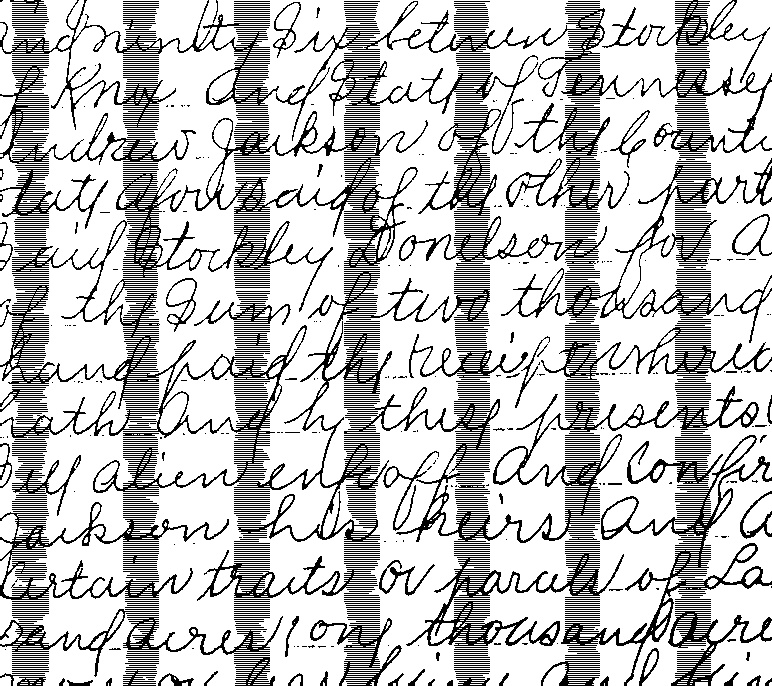 and ninty Six between Stockley
of Knox And State of Tennessey
Andrew Jackson of the County
State aforesaid of the other part
Said Stockley Donelson for A
of the Sum of two thousand
hand paid the receipt whereo
hath And by these presents
Sell alien enfeoff And Confir
Jackson his heirs And A
Certain tracts or parcels of La
sand acres one thousand acre
more or less lying and bein